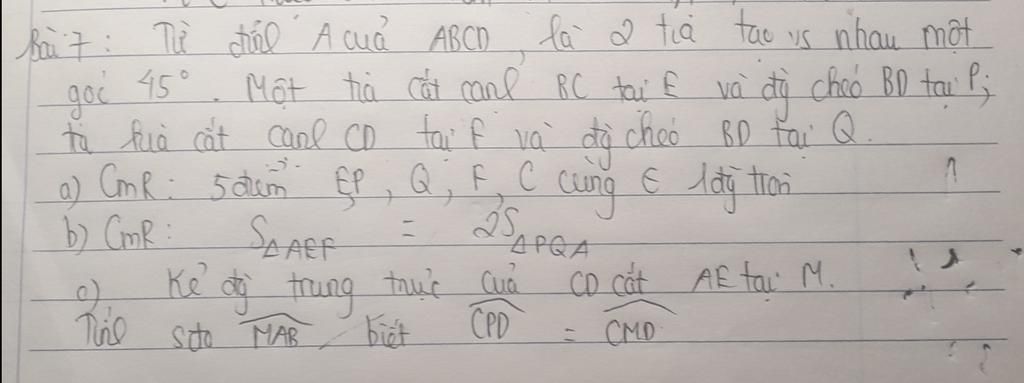 Bài 7: Từ đỉnh A của ABCD, là 2 tia tạo vs nhau một
góc 45°. Một tia cắt cạnh BC tại E và đg chéo BD tại P;
tia kia cắt cạnh CD tại F và đg chéo BD tại Q.
a) CmR: 5 điểm E, P, Q, F, C cùng ∈ 1 đg tròn
b) CmR: S△AEF = 2S△PQA
c) Kẻ đg trung trực của CD cắt AE tại M.
Tính sđo MAB biết CPD = CMD